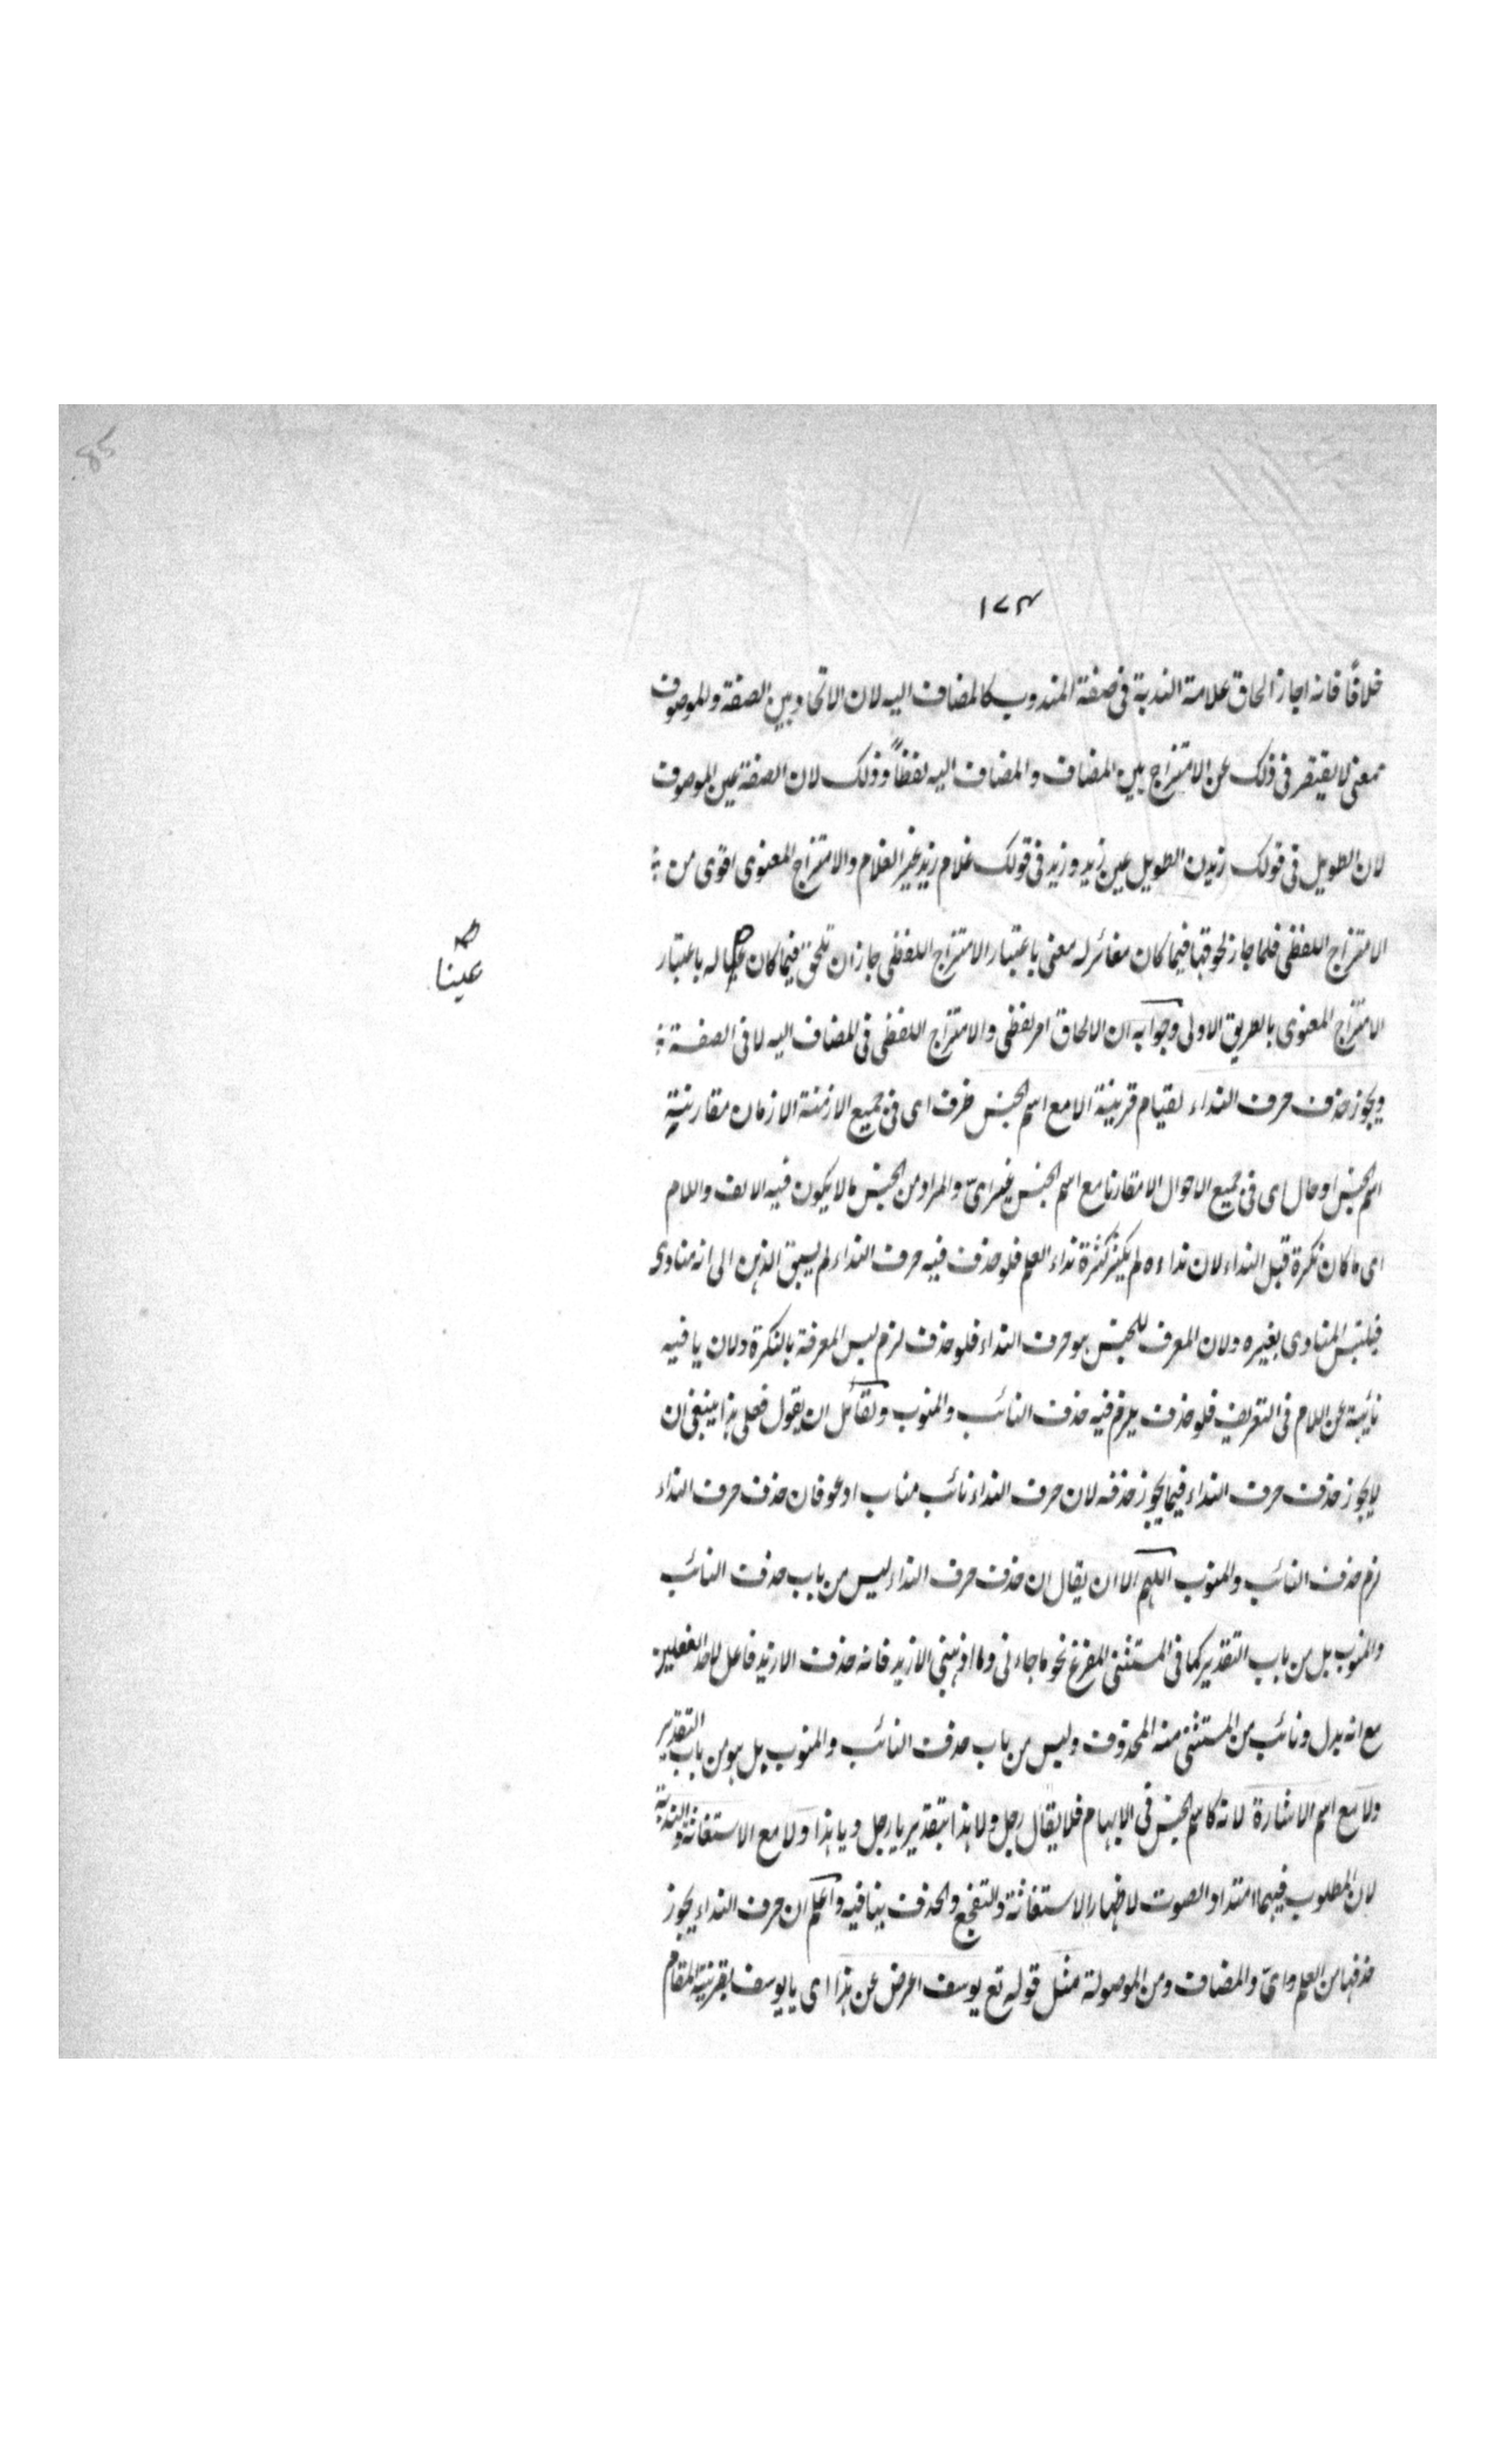 85
١٧٣
خلافًا فانه اجاز الحاق علامة الندبة فى صفة المندوب كالمضاف اليه لان الاتحاد بين الصفة والموصوف
معنى لا يقتصر فى ذلك عن الامتزاج بين المضاف والمضاف اليه لفظاً وذلك لان الصفة عين الموصوف
لان الطويل فى قولك زيدن الطويل عين زيد وزيد فى قولك غلام زيد غير الغلام والامتزاج المعنوى اقوى من
الامتزاج اللفظى فلما جاز لحوقها فيما كان مغائر له معنى باعتبار الامتزاج اللفظى جاز ان تلحق فيما كان له باعتبار
عينا
الامتزاج المعنوى بالطريق الاولى وجوابه ان الالحاق امر لفظى والامتزاج اللفظى فى المضاف اليه لا فى الصفة
ويجوز حذف حرف النداء لقيام قرينة الا مع اسم الجنس ظرف اى فى جميع الازمنة الا زمان مقارنية
اسم الجنس او حال اى فى جميع الاحوال الا مقارنا مع اسم الجنس غير اىّ والمراد من الجنس ما لا يكون فيه الالف واللام
اى ما كان نكرة قبل النداء لان نداءه لم يكثر كثرة نداء العلم فلو حذف فيه حرف النداء لم يسبق الذهن الى انه منادى
فيلتبس المنادى بغيره ولان المعرف للجنس هو حرف النداء فلو حذف لزم لبس المعرفة بالنكرة ولان يا فيه
نائبة عن اللام فى التعريف فلو حذف يلزم فيه حذف النائب والمنوب ولقائل ان يقول فعلى هذا ينبغى ان
لا يجوز حذف حرف النداء فيما يجوز حذفه لان حرف النداء نائب مناب ادعو فان حذف حرف النداء
لزم حذف النائب والمنوب اللهم الا ان يقال ان حذف حرف النداء ليس من باب حذف النائب
والمنوب بل من باب التقدير كما فى المستثنى المفرغ نحو ما جاءنى وما اذهبنى الا زيد فانه حذف الا زيد فاعل لاحد الفعلين
مع انه بدل ونائب من المستثنى منه المحذوف وليس من باب حذف النائب والمنوب بل هو من باب التقدير
ولا مع اسم الاشارة لانه كاسم الجنس فى الابهام فلا يقال رجل ولا هذا بتقدير يا رجل ويا هذا ولا مع الاستغاثة والندبة
لان المطلوب فيهما امتداد الصوت لاظهار الاستغاثة والتفجع والحذف ينافيه واعلم ان حرف النداء يجوز
حذفها من العلم واىّ والمضاف ومن الموصولة مثل قوله تع يوسف اعرض عن هذا اى يا يوسف بقرينة المقام